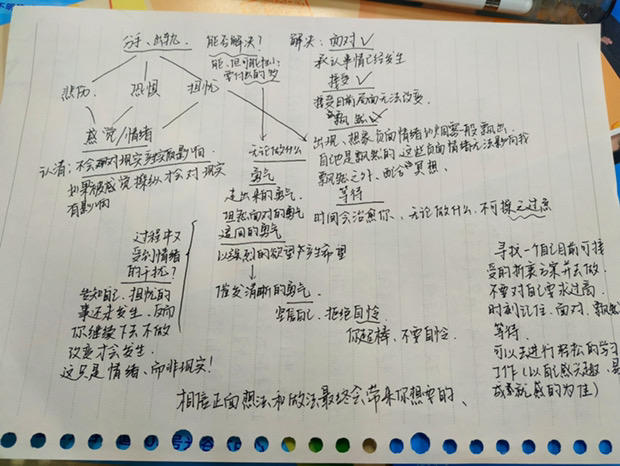 分手、出轨
悲伤 恐惧 担忧
感觉/情绪
认清:不会对现实
如果被感觉操纵才会对现实
有影响
过程中又
受到情绪
的干扰?
告知自己,担忧的
事还未发生,反而
你继续下去不做
改变才会发生.
这只是情绪、而非现实!
能否解决?
能,但可能
无论做什么
勇气
走出来的勇气
担起面对的勇气
追问的勇气
以强烈的欲望产生希望
催发清晰的勇气
自己、拒绝自怜
你超棒,不要自怜.
解决:面对✓
承认事情已经发生
接受✓
接受目前局面无法改变.
飘然✓
出现、想象负面情绪如烟雾一般飘出
自己是飘然的,这些负面情绪无法影响我
飘然之外、配合"冥想、
等待
时间会治愈你、无论做什么,不可操之过急
寻找一个自己目前可接
受的折衷方案并去做.
不要对自己要求过高.
时刻记住,面对,飘然
等待.
可以去进行轻松的学习
工作(以自己感兴趣、
成就感的为佳)
相信正面想法和做法最终会带来你想要的、